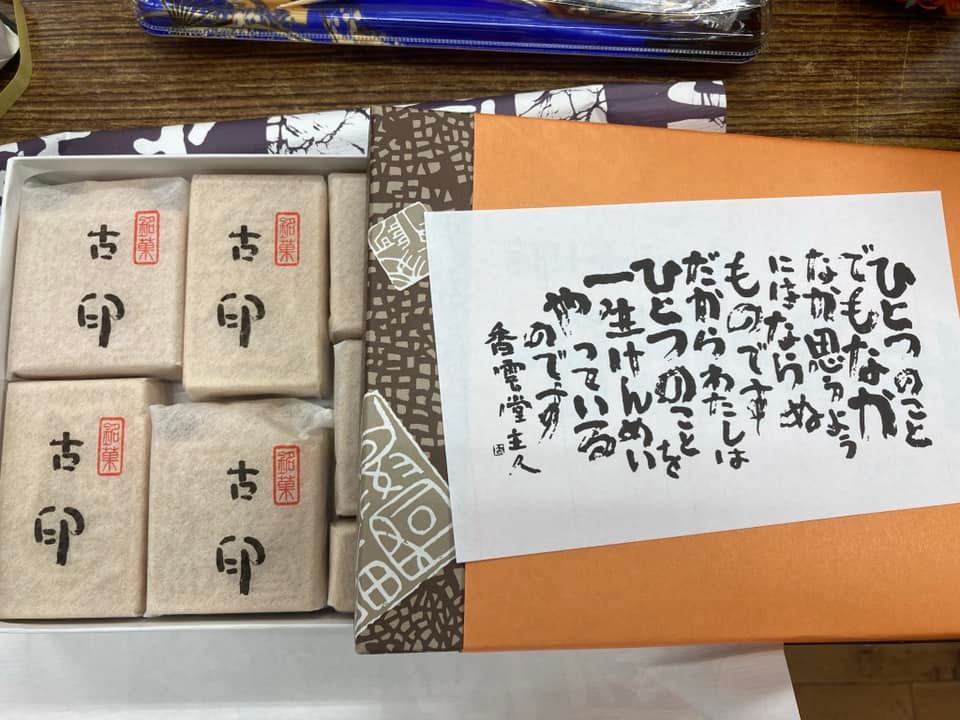 銘菓
古印
銘菓
古印
銘菓
古印
銘菓
古印
ひとつのこと
でもなか
なか思うよう
にはならぬ
ものです
だからわたしは
ひとつのことを
一生けんめい
やっている
のです
香雲堂主人